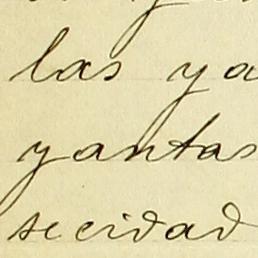 las ya
yantas
secidad